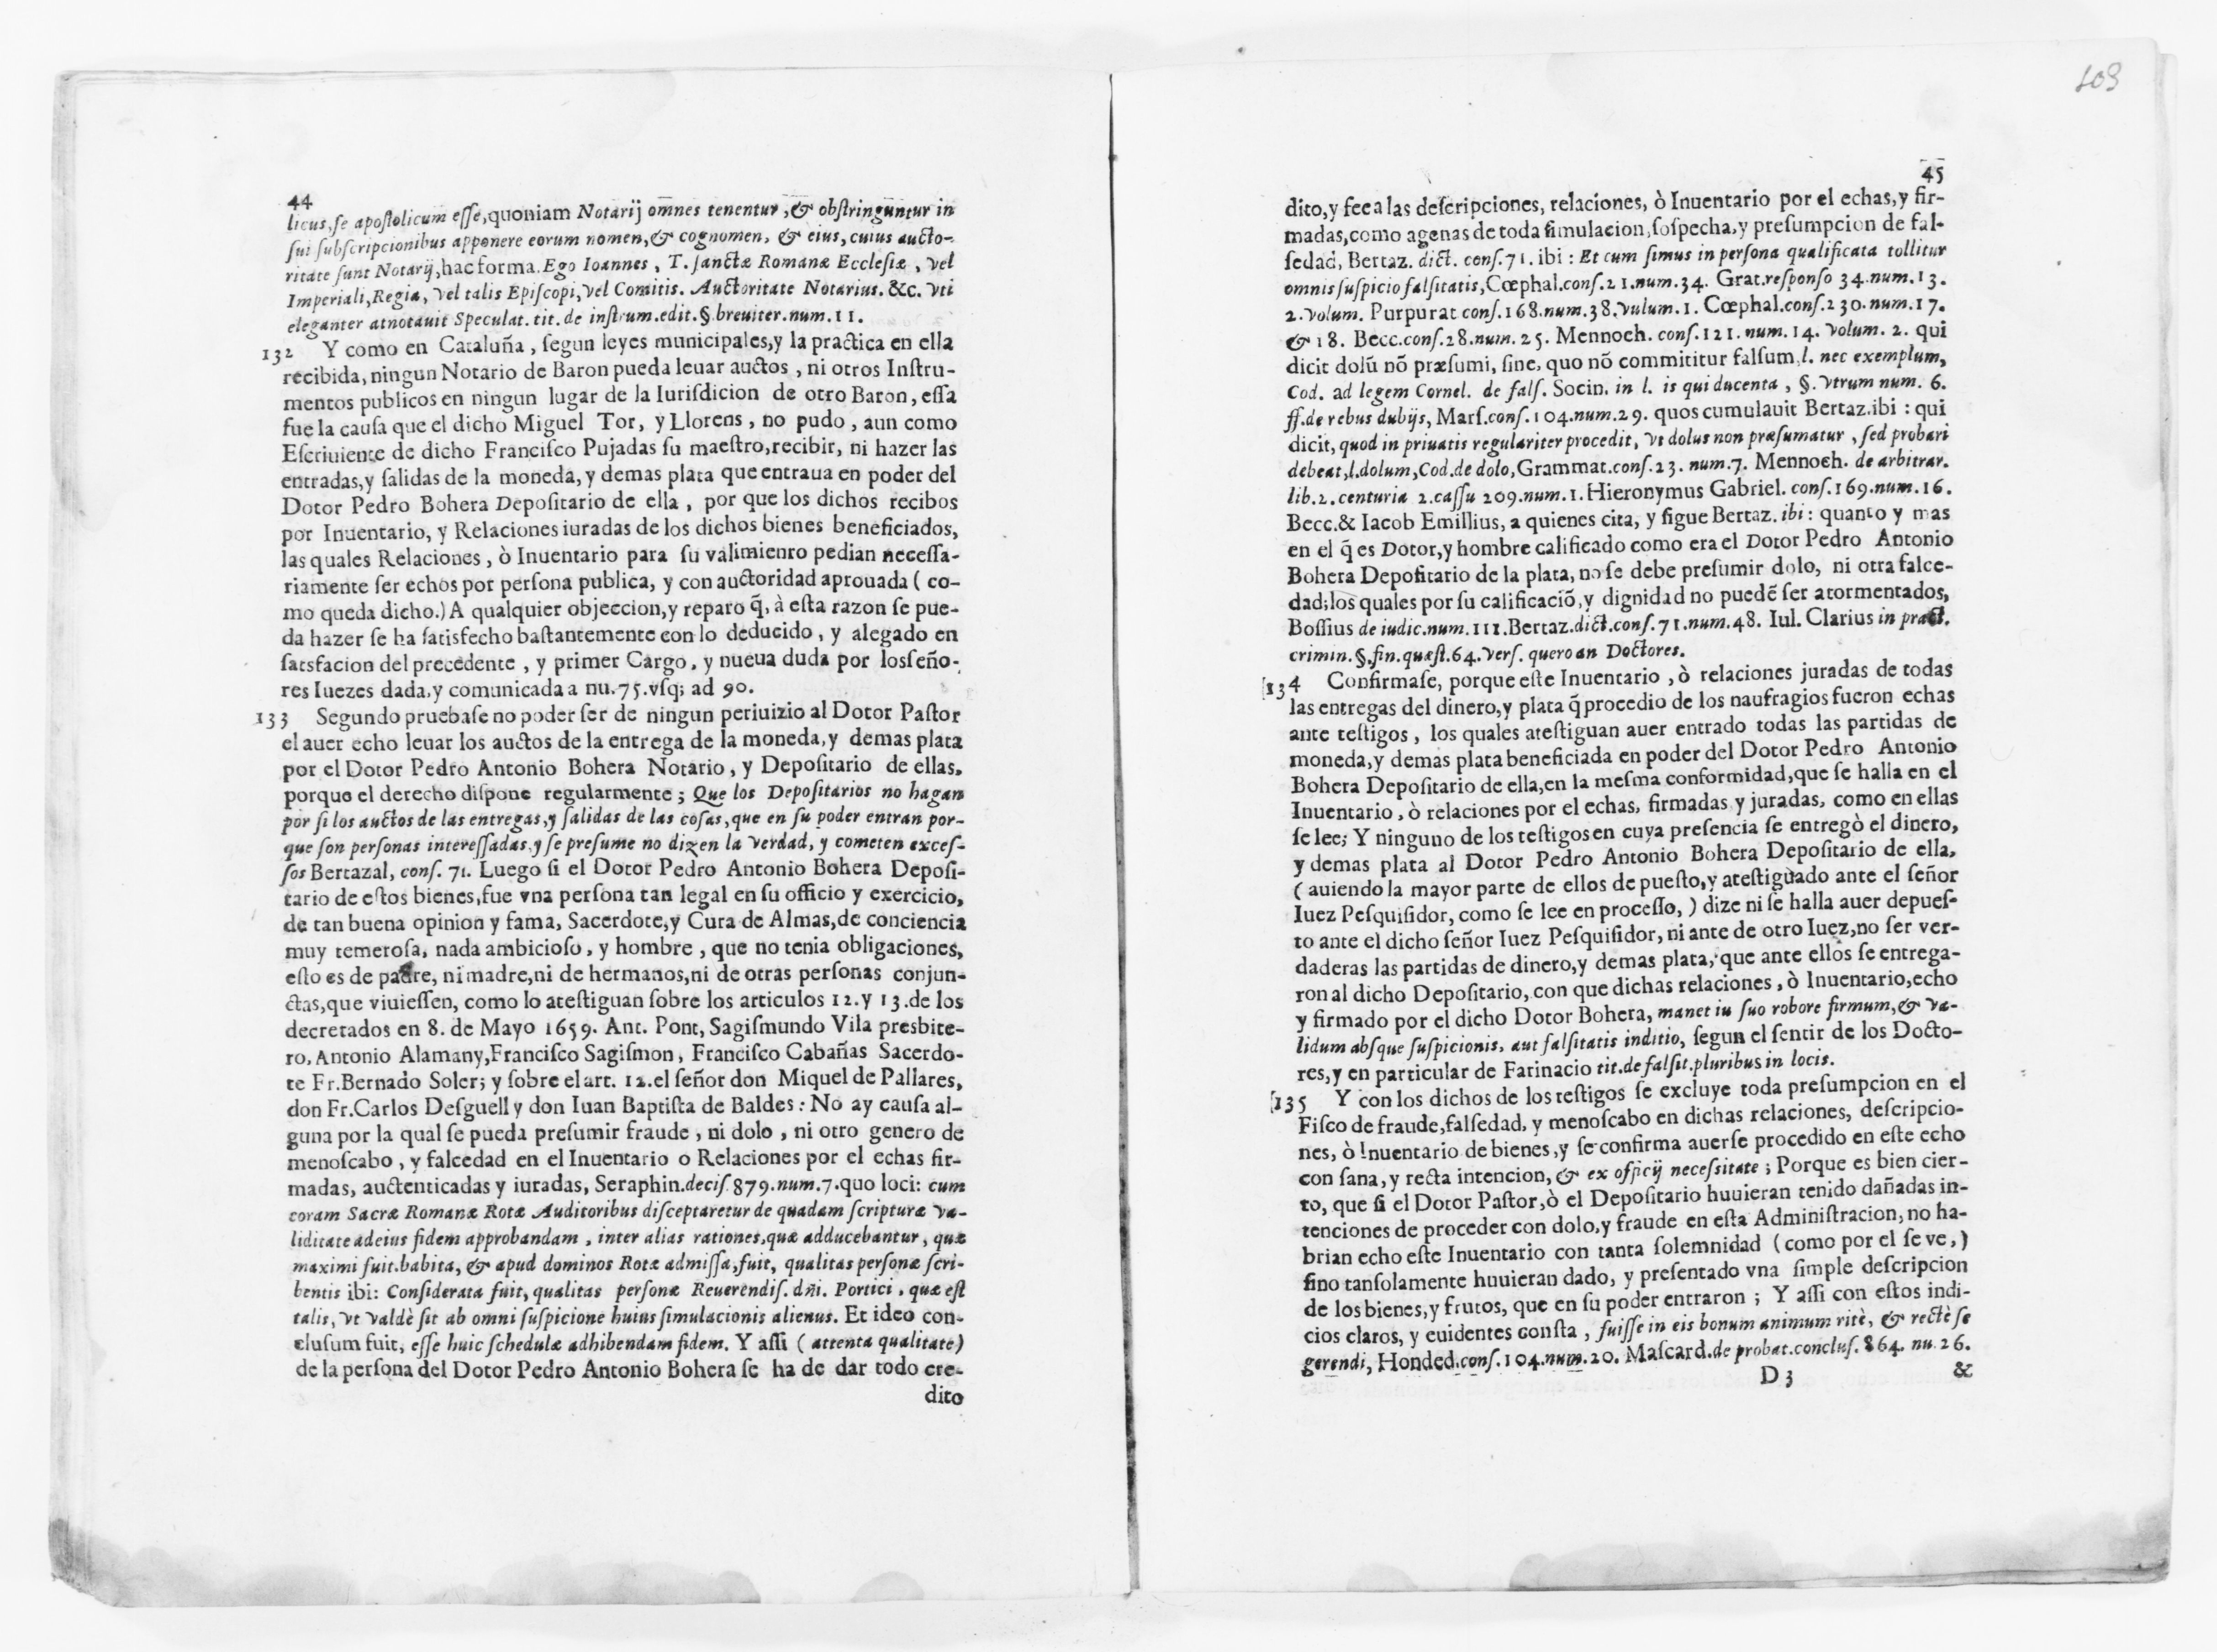 44
licus, ſe apoſtolicum eſſe, quoniam Notarij omnes tenentur, & obſtringuntur in
ſui ſubſcripcionibus apponere eorum nomen, & cognomen, & eius, cuius aucto-
ritate ſunt Notarij, hac forma. Ego Ioannes, T. ſanctæ Romanæ Eccleſiæ, vel
Imperiali, Regia, vel talis Epiſcopi, vel Comitis. Auctoritate Notarius. &c. vti
eleganter atnotauit Speculat. tit. de inſtrum. edit. §. breuiter. num. 11.
132 Y como en Cataluña, ſegun leyes municipales, y la practica en ella
recibida, ningun Notario de Baron pueda leuar auctos, ni otros Inſtru-
mentos publicos en ningun lugar de la Iuriſdicion de otro Baron, eſſa
fue la cauſa que el dicho Miguel Tor, y Llorens, no pudo, aun como
Eſcriuiente de dicho Franciſco Pujadas ſu maeſtro, recibir, ni hazer las
entradas, y ſalidas de la moneda, y demas plata que entraua en poder del
Dotor Pedro Bohera Depoſitario de ella, por que los dichos recibos
por Inuentario, y Relaciones iuradas de los dichos bienes beneficiados,
las quales Relaciones, ò Inuentario para ſu valimienro pedian neceſſa-
riamente ſer echos por perſona publica, y con auctoridad aprouada ( co-
mo queda dicho.) A qualquier objeccion, y reparo q̃, à eſta razon ſe pue-
da hazer ſe ha ſatisfecho baſtantemente con lo deducido, y alegado en
ſatsfacion del precedente, y primer Cargo, y nueua duda por losſeño-
res Iuezes dada, y comunicada a nu. 75. vſq; ad 90.
133 Segundo pruebaſe no poder ſer de ningun periuizio al Dotor Paſtor
el auer echo leuar los auctos de la entrega de la moneda, y demas plata
por el Dotor Pedro Antonio Bohera Notario, y Depoſitario de ellas,
porque el derecho diſpone regularmente; Que los Depoſitarios no hagan
por ſi los auctos de las entregas, y ſalidas de las coſas, que en ſu poder entran por-
que ſon perſonas intereſſadas, y ſe preſume no dizen la verdad, y cometen exceſ-
ſos Bertazal, conſ. 71. Luego ſi el Dotor Pedro Antonio Bohera Depoſi-
tario de eſtos bienes, fue vna perſona tan legal en ſu officio y exercicio,
de tan buena opinion y fama, Sacerdote, y Cura de Almas, de conciencia
muy temeroſa, nada ambicioſo, y hombre, que no tenia obligaciones,
eſto es de padre, ni madre, ni de hermanos, ni de otras perſonas conjun-
ctas, que viuieſſen, como lo ateſtiguan ſobre los articulos 12. y 13. de los
decretados en 8. de Mayo 1659. Ant. Pont, Sagiſmundo Vila presbite-
ro, Antonio Alamany, Franciſco Sagiſmon, Franciſco Cabañas Sacerdo-
te Fr. Bernado Soler; y ſobre el art. 12. el ſeñor don Miquel de Pallares,
don Fr. Carlos Deſguell y don Iuan Baptiſta de Baldes: No ay cauſa al-
guna por la qual ſe pueda preſumir fraude, ni dolo, ni otro genero de
menoſcabo, y falcedad en el Inuentario o Relaciones por el echas fir-
madas, auctenticadas y iuradas, Seraphin. deciſ. 879. num. 7. quo loci: cum
coram Sacræ Romanæ Rotæ Auditoribus diſceptaretur de quadam ſcripturæ va-
liditate adeius fidem approbandam, inter alias rationes, quæ adducebantur, quæ
maximi fuit. habita, & apud dominos Rotæ admiſſa, fuit, qualitas perſonæ ſcri-
bentis ibi: Conſiderata fuit, qualitas perſonæ Reuerendiſ. dñi. Portici, quæ eſt
talis, vt valdè ſit ab omni ſuſpicione huius ſimulacionis alienus. Et ideo con-
cluſum fuit, eſſe huic ſchedulæ adhibendam fidem. Y aſſi ( attenta qualitate)
de la perſona del Dotor Pedro Antonio Bohera ſe ha de dar todo cre-
dito
103
45
dito, y fee a las deſcripciones, relaciones, ò Inuentario por el echas, y fir-
madas, como agenas de toda ſimulacion, ſoſpecha, y preſumpcion de fal-
ſedad, Bertaz. dict. conſ. 71. ibi: Et cum ſimus in perſona qualificata tollitur
omnis ſuſpicio falſitatis, Cœphal. conſ. 21. num. 34. Grat. reſponſo 34. num. 13.
2. volum. Purpurat conſ. 168. num. 38. vulum. 1. Cœphal. conſ. 230. num. 17.
& 18. Becc. conſ. 28. num. 25. Mennoch. conſ. 121. num. 14. volum. 2. qui
dicit dolũ nõ præſumi, ſine, quo nõ commititur falſum, l. nec exemplum,
Cod. ad legem Cornel. de falſ. Socin. in l. is qui ducenta, §. vtrum num. 6.
ff. de rebus dubijs, Marſ. conſ. 104. num. 29. quos cumulauit Bertaz. ibi: qui
dicit, quod in priuatis regulariter procedit, vt dolus non præſumatur, ſed probari
debeat, l. dolum, Cod. de dolo, Grammat. conſ. 23. num. 7. Mennoch. de arbitrar.
lib. 2. centuria 2. caſſu 209. num. 1. Hieronymus Gabriel. conſ. 169. num. 16.
Becc. & Iacob Emillius, a quienes cita, y ſigue Bertaz. ibi: quanto y mas
en el q̃ es Dotor, y hombre calificado como era el Dotor Pedro Antonio
Bohera Depoſitario de la plata, no ſe debe preſumir dolo, ni otra falce-
dad; los quales por ſu calificaciõ, y dignidad no puedẽ ſer atormentados,
Boſſius de iudic. num. 111. Bertaz. dict. conſ. 71. num. 48. Iul. Clarius in pract.
crimin. §. fin. quæſt. 64. verſ. quero an Doctores.
134 Confirmaſe, porque eſte Inuentario, ò relaciones juradas de todas
las entregas del dinero, y plata q̃ procedio de los naufragios fueron echas
ante teſtigos, los quales ateſtiguan auer entrado todas las partidas de
moneda, y demas plata beneficiada en poder del Dotor Pedro Antonio
Bohera Depoſitario de ella, en la meſma conformidad, que ſe halla en el
Inuentario, ò relaciones por el echas, firmadas y juradas, como en ellas
ſe lee; Y ninguno de los teſtigos en cuya preſencia ſe entregò el dinero,
y demas plata al Dotor Pedro Antonio Bohera Depoſitario de ella,
( auiendo la mayor parte de ellos de pueſto, y ateſtiguado ante el ſeñor
Iuez Peſquiſidor, como ſe lee en proceſſo, ) dize ni ſe halla auer depueſ-
to ante el dicho ſeñor Iuez Peſquiſidor, ni ante de otro Iuez, no ſer ver-
daderas las partidas de dinero, y demas plata, que ante ellos ſe entrega-
ron al dicho Depoſitario, con que dichas relaciones, ò Inuentario, echo
y firmado por el dicho Dotor Bohera, manet iu ſuo robore firmum, & va-
lidum abſque ſuſpicionis, aut falſitatis inditio, ſegun el ſentir de los Docto-
res, y en particular de Farinacio tit. de falſit. pluribus in locis.
135 Y con los dichos de los teſtigos ſe excluye toda preſumpcion en el
Fiſco de fraude, falſedad, y menoſcabo en dichas relaciones, deſcripcio-
nes, ò Inuentario de bienes, y ſe confirma auerſe procedido en eſte echo
con ſana, y recta intencion, & ex officij neceſsitate; Porque es bien cier-
to, que ſi el Dotor Paſtor, ò el Depoſitario huuieran tenido dañadas in-
tenciones de proceder con dolo, y fraude en eſta Adminiſtracion, no ha-
brian echo eſte Inuentario con tanta ſolemnidad ( como por el ſe ve, )
ſino tanſolamente huuieran dado, y preſentado vna ſimple deſcripcion
de los bienes, y frutos, que en ſu poder entraron; Y aſſi con eſtos indi-
cios claros, y euidentes conſta, fuiſſe in eis bonum animum ritè, & rectè ſe
gerendi, Honded. conſ. 104. num. 20. Maſcard. de probat. concluſ. 864. nu. 26.
D 3 &